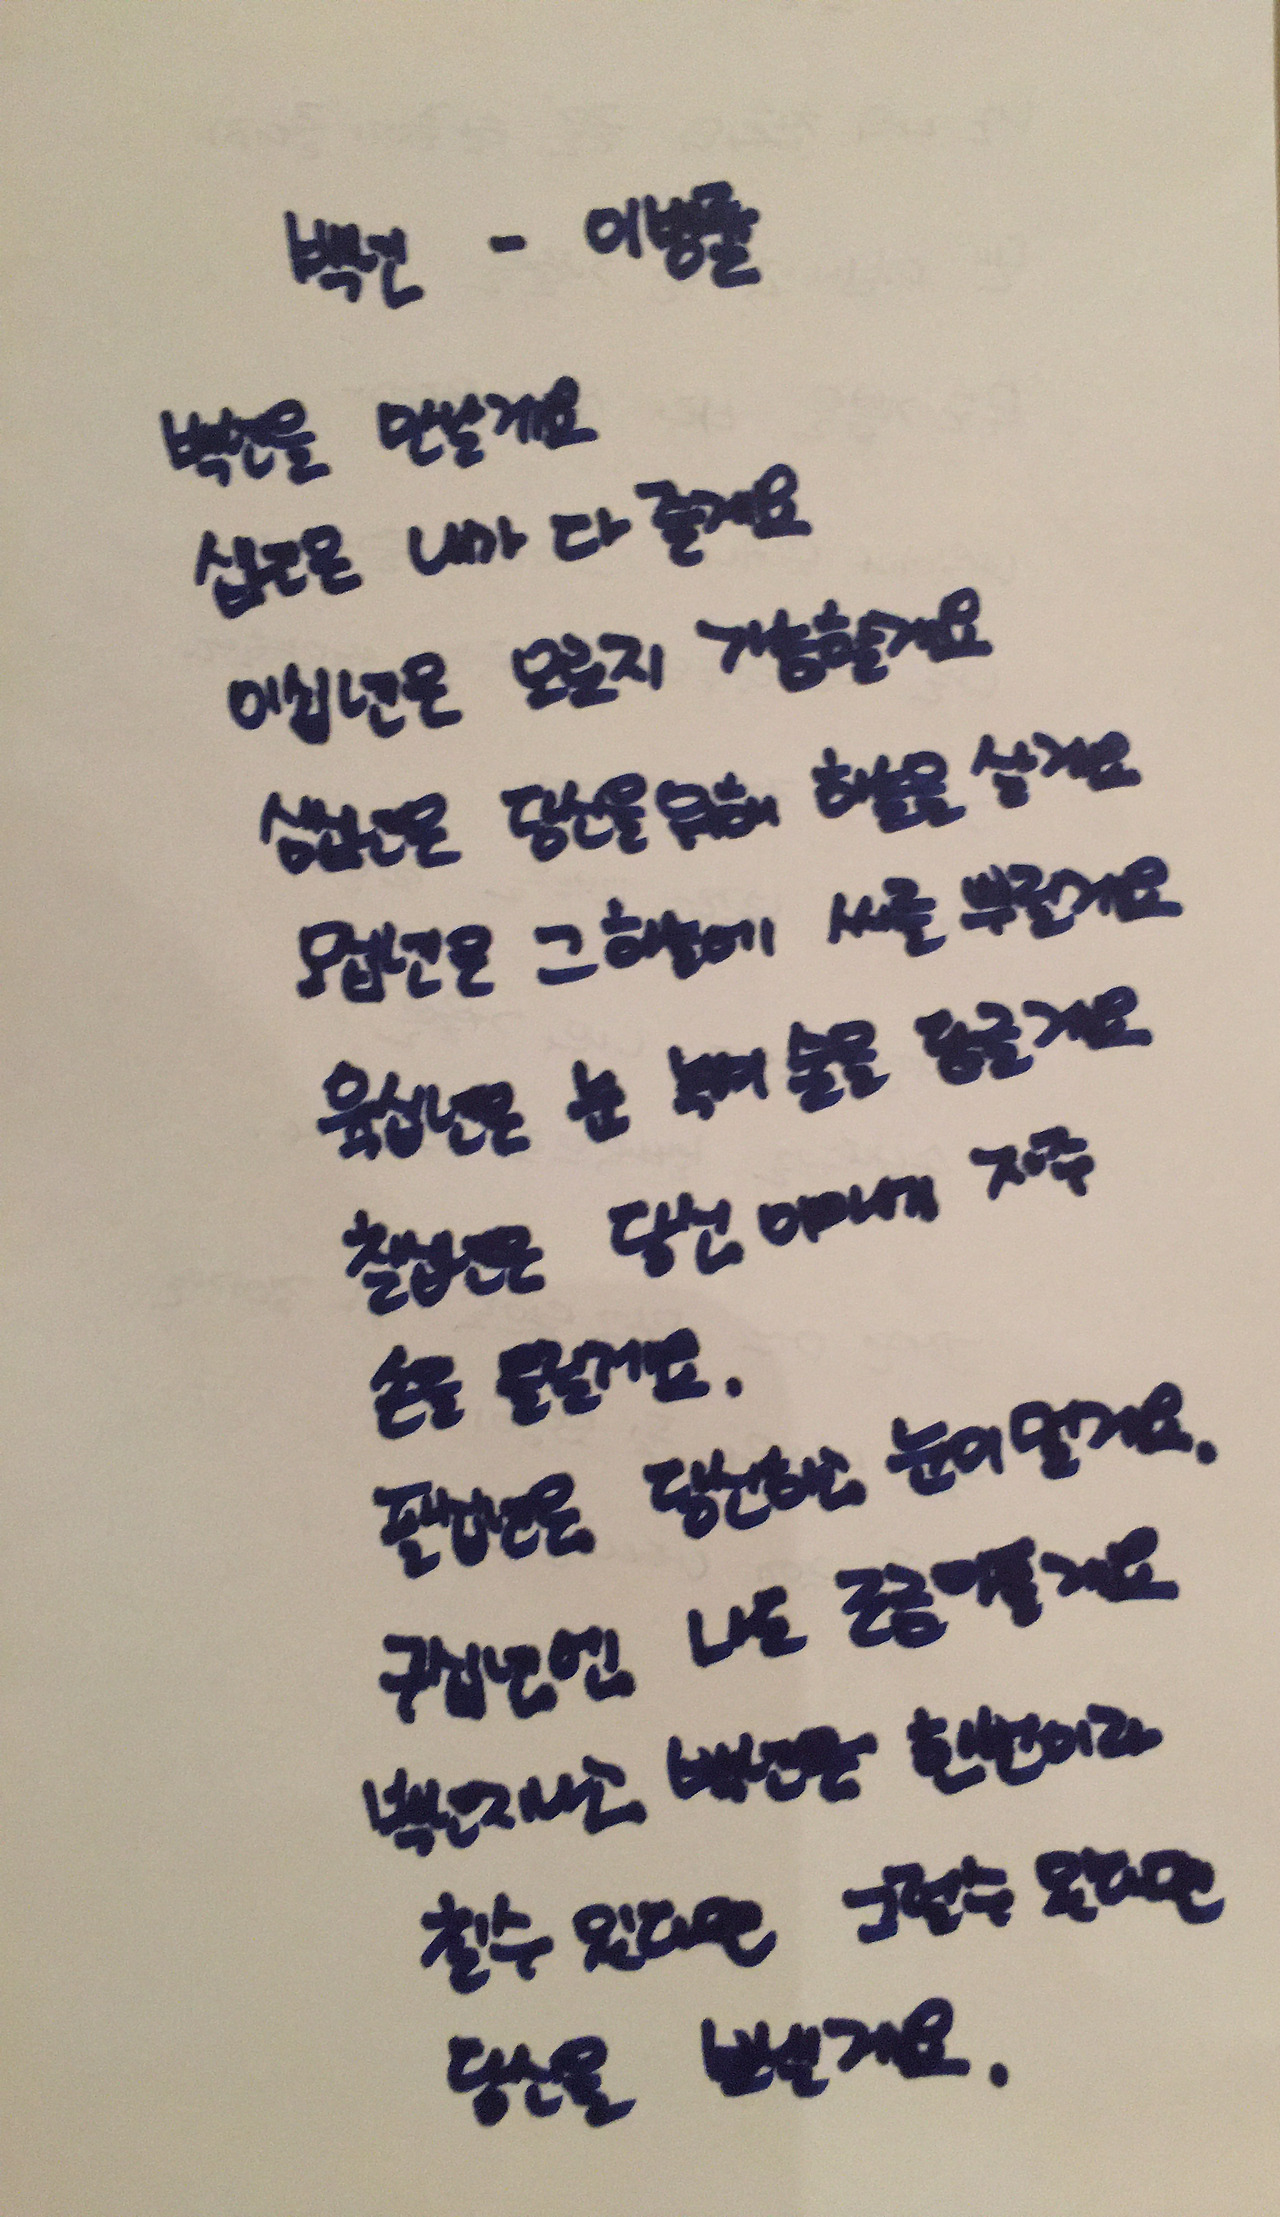 백년 - 이병률
백년을 만날게요
십년은 내가 다 줄게요
이십년은 오로지 가늠할게요
삼십년은 당신을 위해 하늘을 살게요
오십년은 그 하늘에 씨를 뿌릴게요
육십년은 눈 녹여 술을 담글게요
칠십년은 당신 이마에 자주
손을 올릴게요.
팔십년은 당신하고 눈이 멀게요.
구십년엔 나도 조금 아플게요
백년 지나고 백년을 한번이라
칠 수 있다면 그럴 수 있다면
당신을 보낼게요.